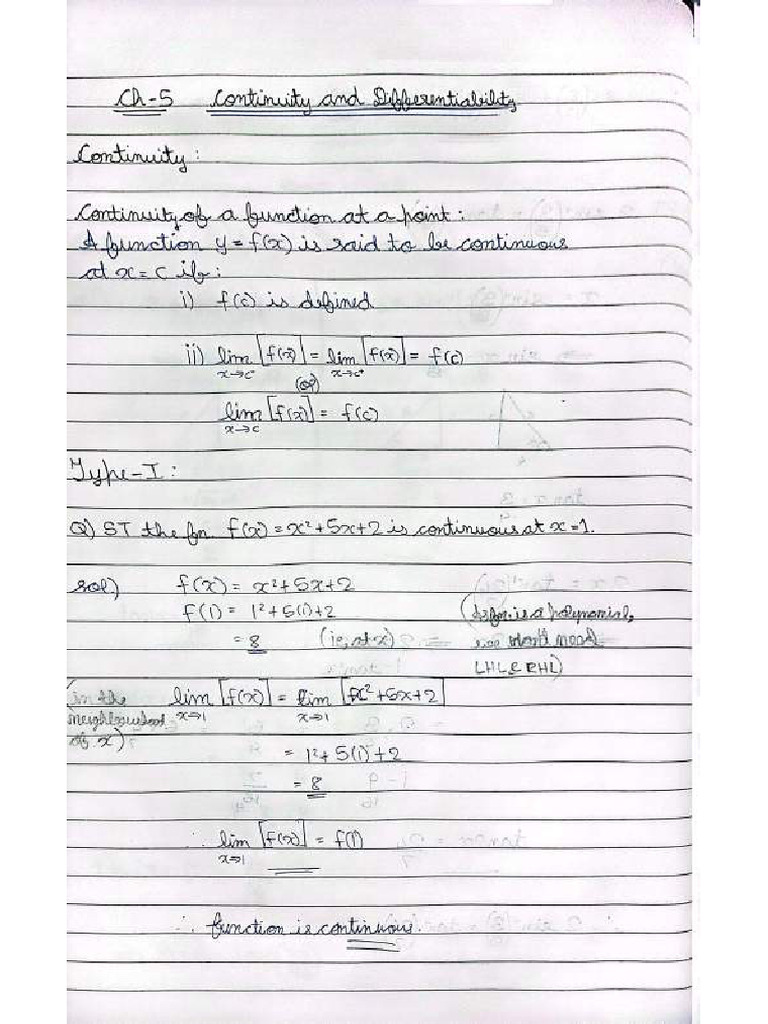 Ch-5 Continuity and Differentiability
Continuity:
Continuity of a function at a point:
A function y = f(x) is said to be continuous
at x = c if:
i) f(c) is defined
ii) lim x→c⁻ [f(x)] = lim x→c⁺ [f(x)] = f(c)
(or)
lim x→c [f(x)] = f(c)
Type-I:
Q) ST the fn f(x) = x²+5x+2 is continuous at x=1.
sol) f(x) = x²+5x+2
f(1) = 1²+5(1)+2 (As fn is a polynomial,
= 8 (ie, at x) we don't need
LHL & RHL)
(in the neighbourhood of x) lim x→1 [f(x)] = lim x→1 [x²+5x+2]
= 1²+5(1)+2
= 8
lim x→1 [f(x)] = f(1)
∴ function is continuous.